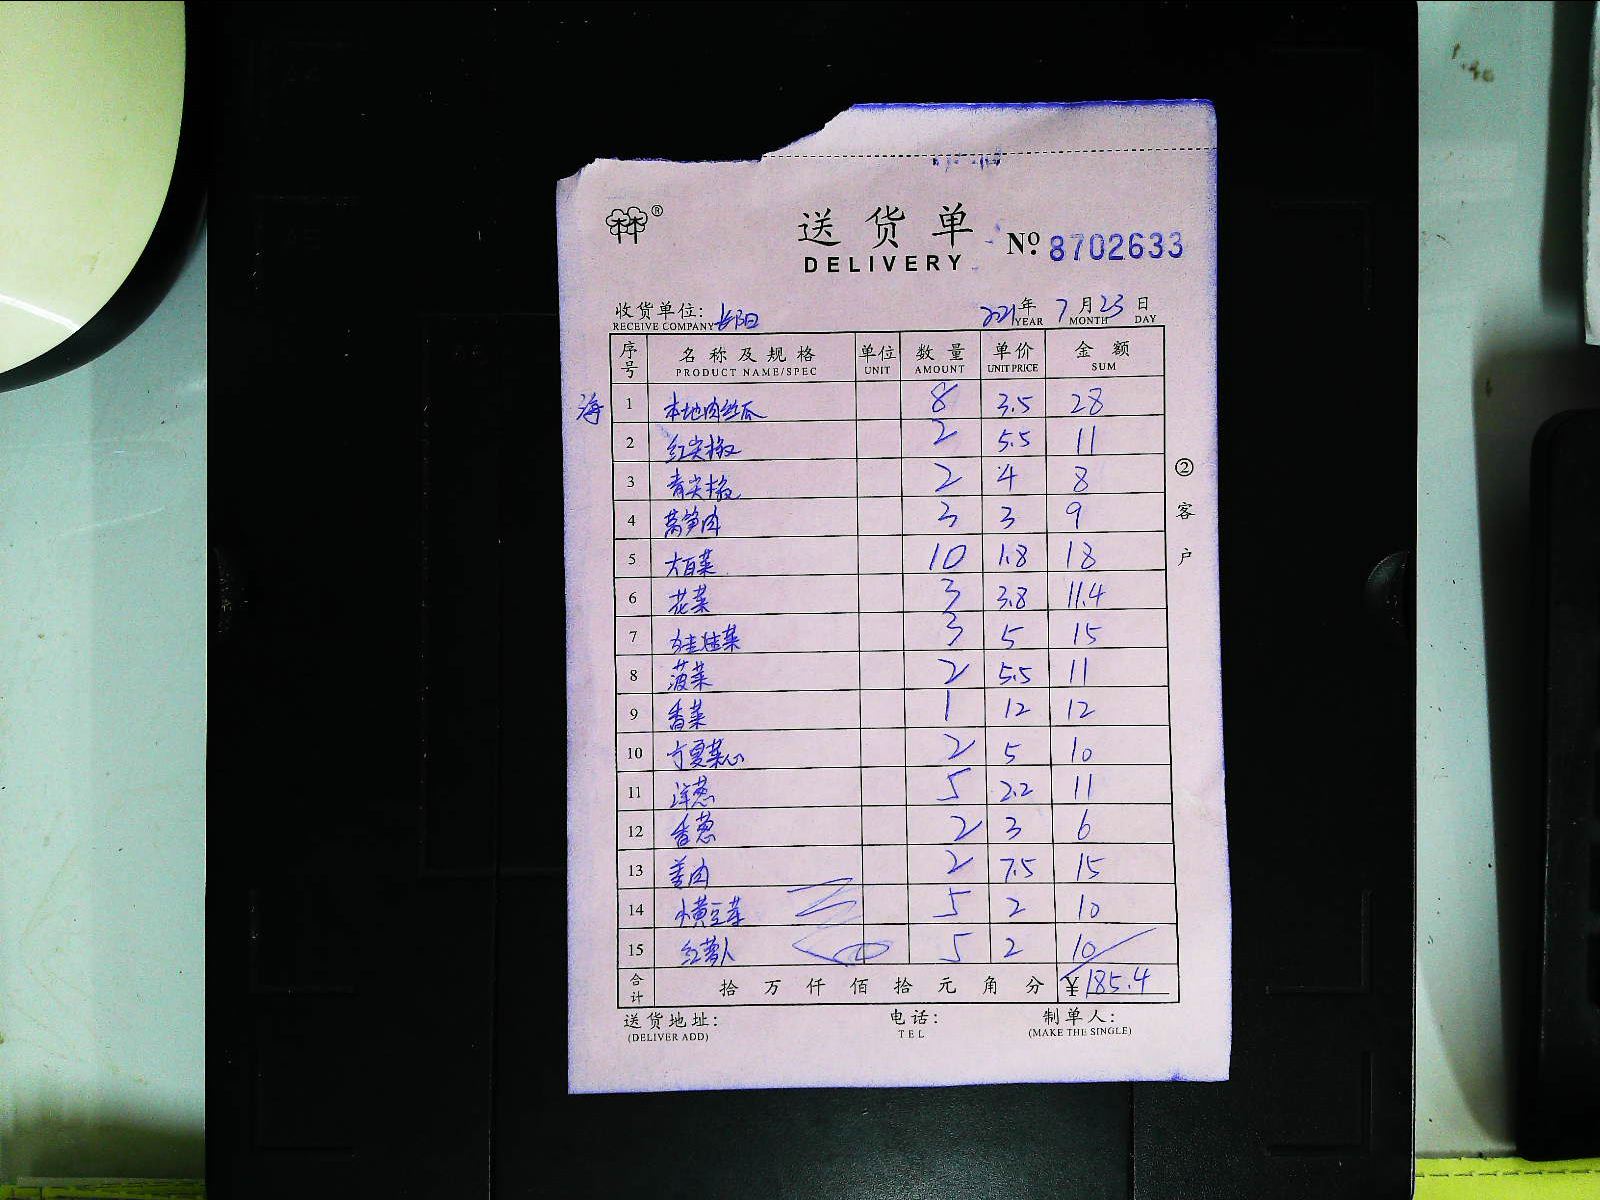 ®
送货单
DELIVERY
No. 8702633
收货单位: 长阳 2021年 7月 23日
RECEIVE COMPANY YEAR MONTH DAY
序号 名称及规格 单位 数量 单价 金额
PRODUCT NAME/SPEC UNIT AMOUNT UNIT PRICE SUM
海 1 本地肉丝瓜 8 3.5 28
2 红尖椒 2 5.5 11
3 青尖椒 2 4 8
4 莴笋肉 3 3 9
5 大白菜 10 1.8 18
6 花菜 3 3.8 11.4
7 娃娃菜 3 5 15
8 菠菜 2 5.5 11
9 香菜 1 12 12
10 宁夏菜心 2 5 10
11 洋葱 5 2.2 11
12 香葱 2 3 6
13 姜肉 2 7.5 15
14 小黄豆芽 5 2 10
15 红萝卜 5 2 10
合计 拾 万 仟 佰 拾 元 角 分 ¥185.4
送货地址: 电话: 制单人:
(DELIVER ADD) TEL (MAKE THE SINGLE)
②客户